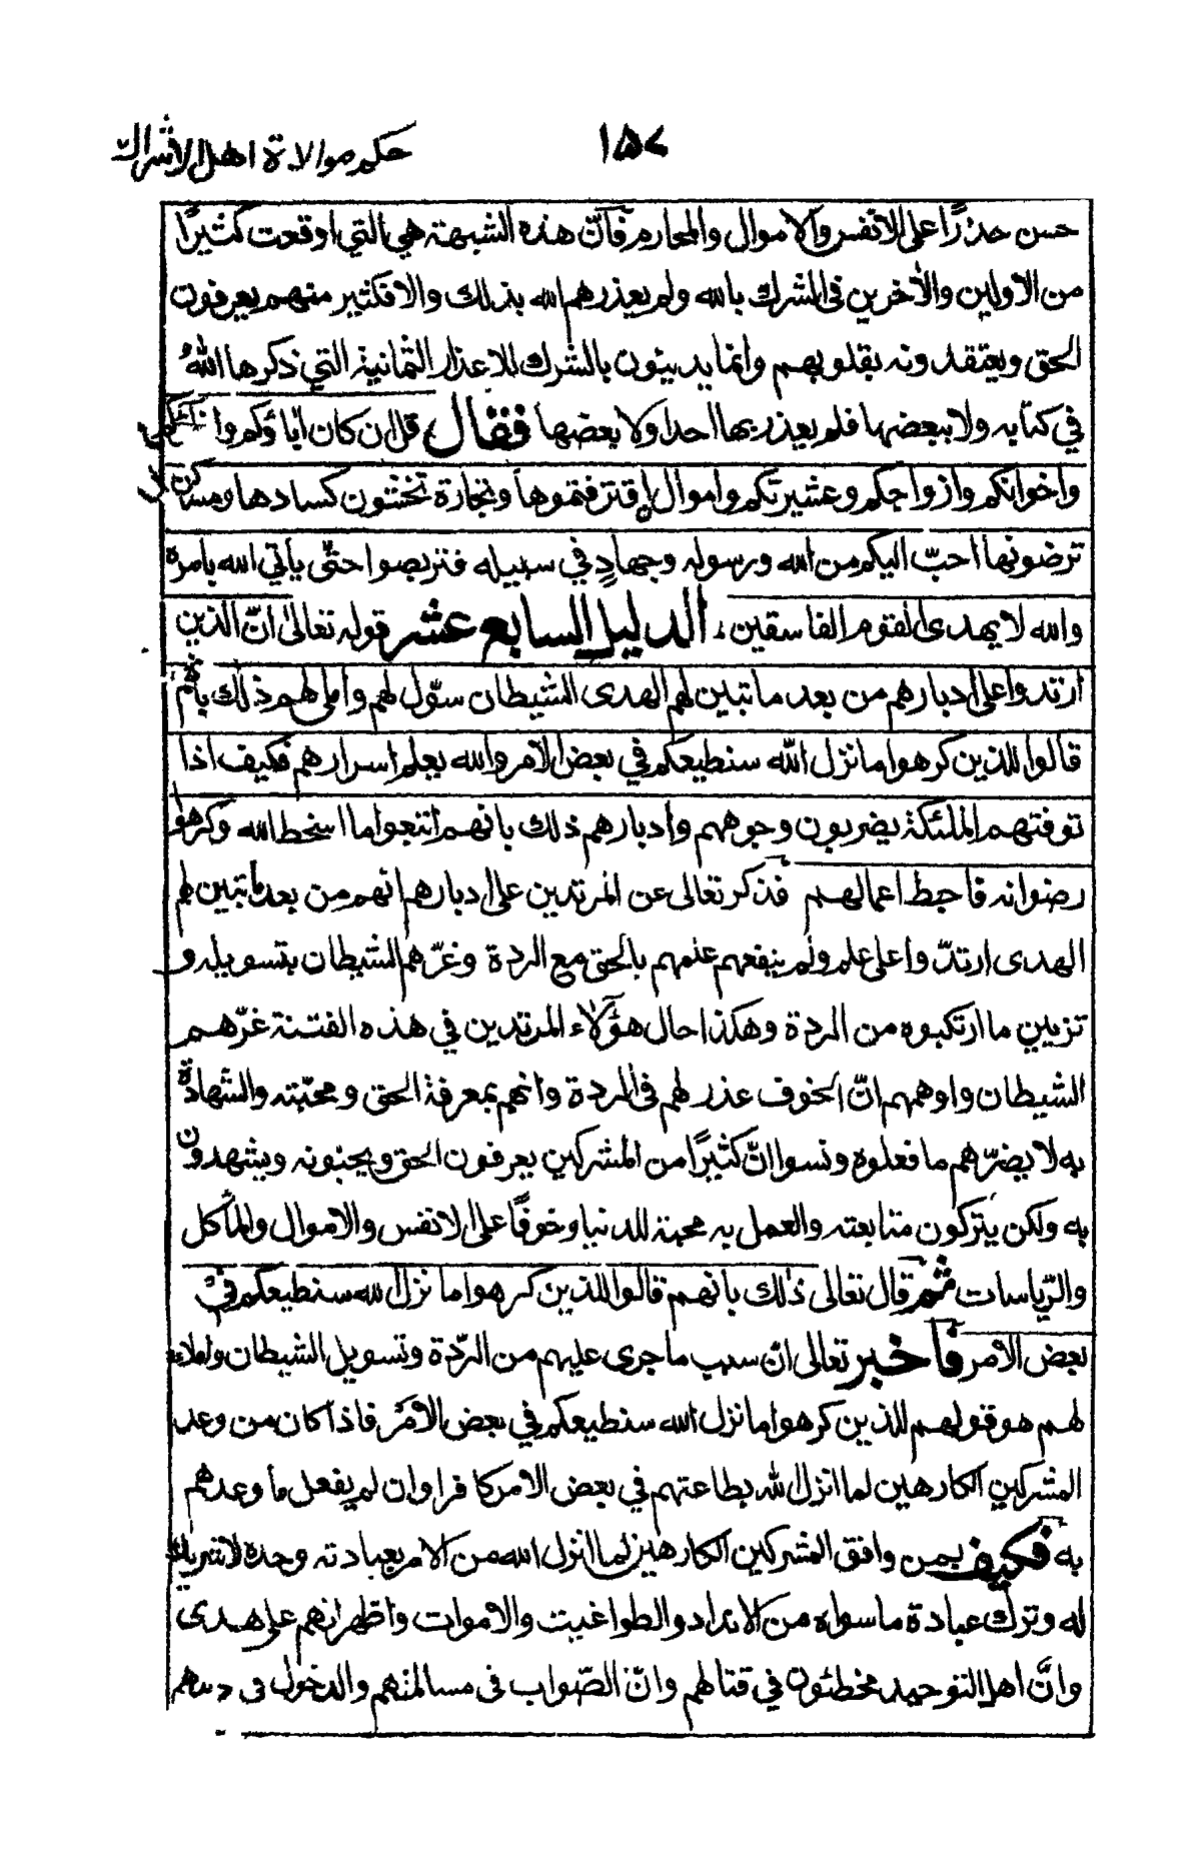 حكم موالاة اهل الاشراك
١٥٧
حسن حذرًا على الانفس والاموال والمحارم فانّ هذه الشبهة هي التي اوقعت كثيرًا
من الاولين والآخرين في الشرك بالله ولم يعذرهم الله بذلك والا فكثير منهم يعرفون
الحق ويعتقدونه بقلوبهم وانما يدينون بالشرك للاعذار الثمانية التي ذكرها اللهُ
في كتابه ولا ببعضها فلم يعذر بها احدا ولا ببعضها فقال، قل ان كان اباؤكم وابنائكم
واخوانكم وازواجكم وعشيرتكم واموال اقترفتموها وتجارة تخشون كسادها ومساكن
ترضونها احبّ اليكم من الله ورسوله وجهادٍ في سبيله فتربصوا حتّى ياتي الله بامره
والله لا يهدى القوم الفاسقين، الدليل السابع عشر قوله تعالىٰ انّ الذين
ارتدوا على ادبارهم من بعد ما تبين لهم الهدى الشيطان سوّل لهم واملى لهم ذلك بانهم
قالوا للذين كرهوا ما نزل الله سنطيعكم في بعض الامر والله يعلم اسرارهم فكيف اذا
توفتهم الملئكة يضربون وجوههم وادبارهم ذلك بانهم اتبعوا ما اسخط الله وكرهوا
رضوانه فاحبط اعمالهم فذكر تعالى عن المرتدين على ادبارهم انهم من بعد ما تبين لهم
الهدى ارتدّوا على علم ولم ينفعهم علمهم بالحق مع الردة وغرّهم الشيطان بتسويله و
تزيين ما ارتكبوه من الردة وهكذا حال هؤلاء المرتدين في هذه الفتنة غرّهم
الشيطان واوهمهم انّ الخوف عذر لهم في الردة وانهم بمعرفة الحق ومحبّته والشهادة
به لا يضرّهم ما فعلوه ونسوا انّ كثيرًا من المشركين يعرفون الحق ويحبونه ويشهدون
به ولكن يتركون متابعته والعمل به محبة للدنيا وخوفًا على الانفس والاموال والمأكل
والرّياسات ثم قال تعالى ذلك بانهم قالوا للذين كرهوا ما نزل الله سنطيعكم في
بعض الامر فاخبر تعالى انّ سبب ما جرى عليهم من الردّة وتسويل الشيطان واملاءه
لهم هو قولهم للذين كرهوا ما نزل الله سنطيعكم في بعض الامر فاذا كان من وعد
المشركين الكارهين لما انزل الله بطاعتهم في بعض الامر كافرا وان لم يفعل ما وعدهم
به فكيف بمن وافق المشركين الكارهين لما انزل الله من الامر بعبادته وحده لا شريك
له وترك عبادة ما سواه من الانداد والطواغيت والاموات واظهر انهم على هدى
وانّ اهل التوحيد مخطئون في قتالهم وانّ الصّواب في مسالمتهم والدخول في دينهم